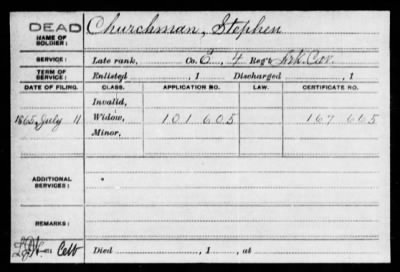 DEAD
NAME OF SOLDIER: Churchman, Stephen
SERVICE: Late rank, Co. E, 4 Reg't Ark Cav.
TERM OF SERVICE: Enlisted , 1 Discharged , 1
DATE OF FILING. CLASS. APPLICATION NO. LAW. CERTIFICATE NO.
Invalid,
1865 July 11 Widow, 101605 167665
Minor,
ADDITIONAL SERVICES:
REMARKS:
Died , 1 , at